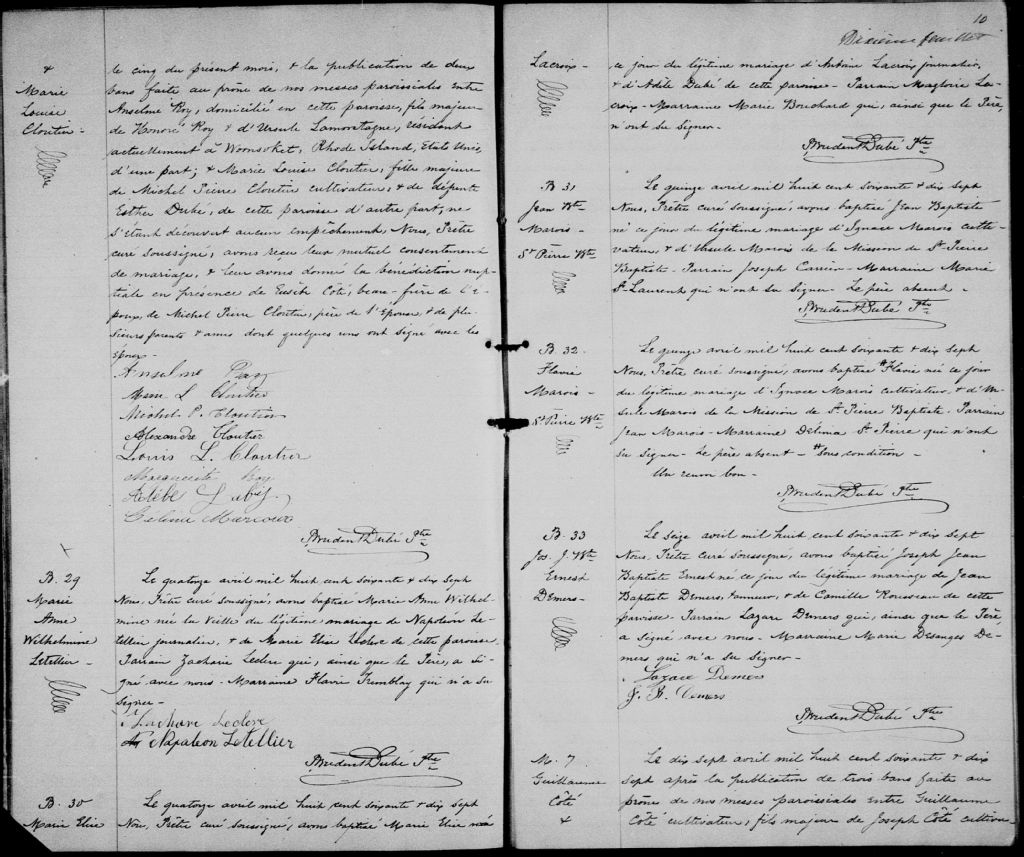 +
Marie
Louise
Cloutier -
le cinq du présent mois, & la publication de deux
bans faite au prône de nos messes paroissiales entre
Anselme Roy, domicilié en cette paroisse, fils majeur
de Honoré Roy & d'Ursule Lamontagne, résidant
actuellement à Woonsoket, Rhode Island, Etats Unis,
d'une part; & Marie Louise Cloutier, fille majeure
de Michel Pierre Cloutier cultivateur, & de défunte
Esther Dubé, de cette paroisse d'autre part; ne
s'étant découvert aucun empêchement, Nous, Prêtre
curé soussigné, avons reçu leur mutuel consentement
de mariage, & leur avons donné la bénédiction nup-
tiale en présence de Eusèbe Côté, beau-frère de l'é-
poux, de Michel Pierre Cloutier, père de l'Epouse, & de plu-
sieurs parents & amis dont quelques uns ont signé avec les
Epoux -
Anselme Roy
M L Cloutier
Michel P. Cloutier
Alexandre Cloutier
Louis L. Cloutier
Marguerite Roy
Célina Marcoux
Prudent Dubé Ptre
+
B. 29
Marie
Anne
Wilhelmine
Letellier -
Le quatorze avril mil huit cent soixante & dix sept
Nous, Prêtre curé soussigné, avons baptisé Marie Anne Wilhel-
mine née la veille du légitime mariage de Napoléon Le-
tellier journalier, & de Marie Elise Leclerc de cette paroisse.
Parrain Zacharie Leclerc qui, ainsi que le Père, a si-
gné avec nous - Marraine Flavie Tremblay qui n'a su
signer -
Zacharie Leclerc
Napoleon Letellier
Prudent Dubé Ptre
B. 30
Marie Elise
Le quatorze avril mil huit cent soixante & dix sept
Nous, Prêtre curé soussigné, avons baptisé Marie Elise née
10
Dixième feuillet
Lacroix -
ce jour du légitime mariage d'Antoine Lacroix journalier,
& d'Adèle Dubé de cette paroisse - Parrain Magloire La-
croix - Marraine Marie Bouchard qui, ainsi que le Père,
n'ont su signer -
Prudent Dubé Ptre
B 31
Jean Bte
Marois -
St Pierre Bte
Le quinze avril mil huit cent soixante & dix sept
Nous, Prêtre curé soussigné, avons baptisé Jean Baptiste
né ce jour du légitime mariage d'Ignace Marois culti-
vateur, & d'Ursule Marois de la Mission de St Pierre
Baptiste. Parrain Joseph Carrier - Marraine Marie
St Laurent qui n'ont su signer - Le père absent -
Prudent Dubé Ptre
B. 32
Flavie
Marois -
St Pierre Bte
Le quinze avril mil huit cent soixante & dix sept
Nous, Prêtre curé soussigné, avons baptisé Flavie né ce jour
du légitime mariage d'Ignace Marois cultivateur, & d'Ur-
sule Marois de la Mission de St Pierre Baptiste. Parrain
Jean Marois - Marraine Delima St Pierre qui n'ont
su signer - Le père absent - Sous condition -
Un renvoi bon -
Prudent Dubé Ptre
B. 33
Jos. J. Bte
Ernest
Demers -
Le seize avril mil huit cent soixante & dix sept
Nous, Prêtre curé soussigné, avons baptisé Joseph Jean
Baptiste Ernest né ce jour du légitime mariage de Jean
Baptiste Demers, tanneur, & de Camille Rousseau de cette
paroisse - Parrain Lazare Demers qui, ainsi que le Père,
a signé avec nous - Marraine Marie Desanges De-
mers qui n'a su signer -
Lazare Demers
J. B. Demers
Prudent Dubé Ptre
M. 7
Guillaume
Côté
+
Le dix sept avril mil huit cent soixante & dix
sept après la publication de trois bans faite au
prône de nos messes paroissiales entre Guillaume
Côté cultivateur, fils majeur de Joseph Côté cultiva-